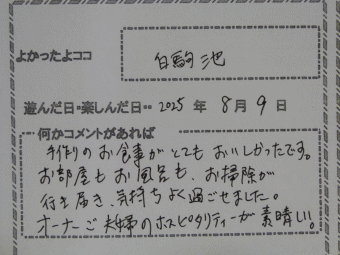 よかったよココ
白駒池
遊んだ日・楽しんだ日・・ 2025 年 8 月 9 日
何かコメントがあれば
手作りのお食事がとてもおいしかったです。
お部屋もお風呂も、お掃除が
行き届き、気持ちよく過ごせました。
オーナーご夫婦のホスピタリティーが素晴しい。